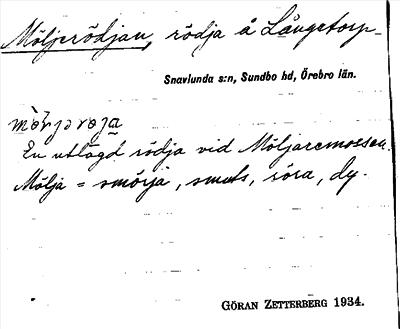 Möljerödjan, rödja å Långetorp
Snavlunda s:n, Sundbo hd, Örebro län.
En utlagd rödja vid Möljaremossen.
Mölja = smörja, smuts, röra, dy.
GÖRAN ZETTERBERG 1934.